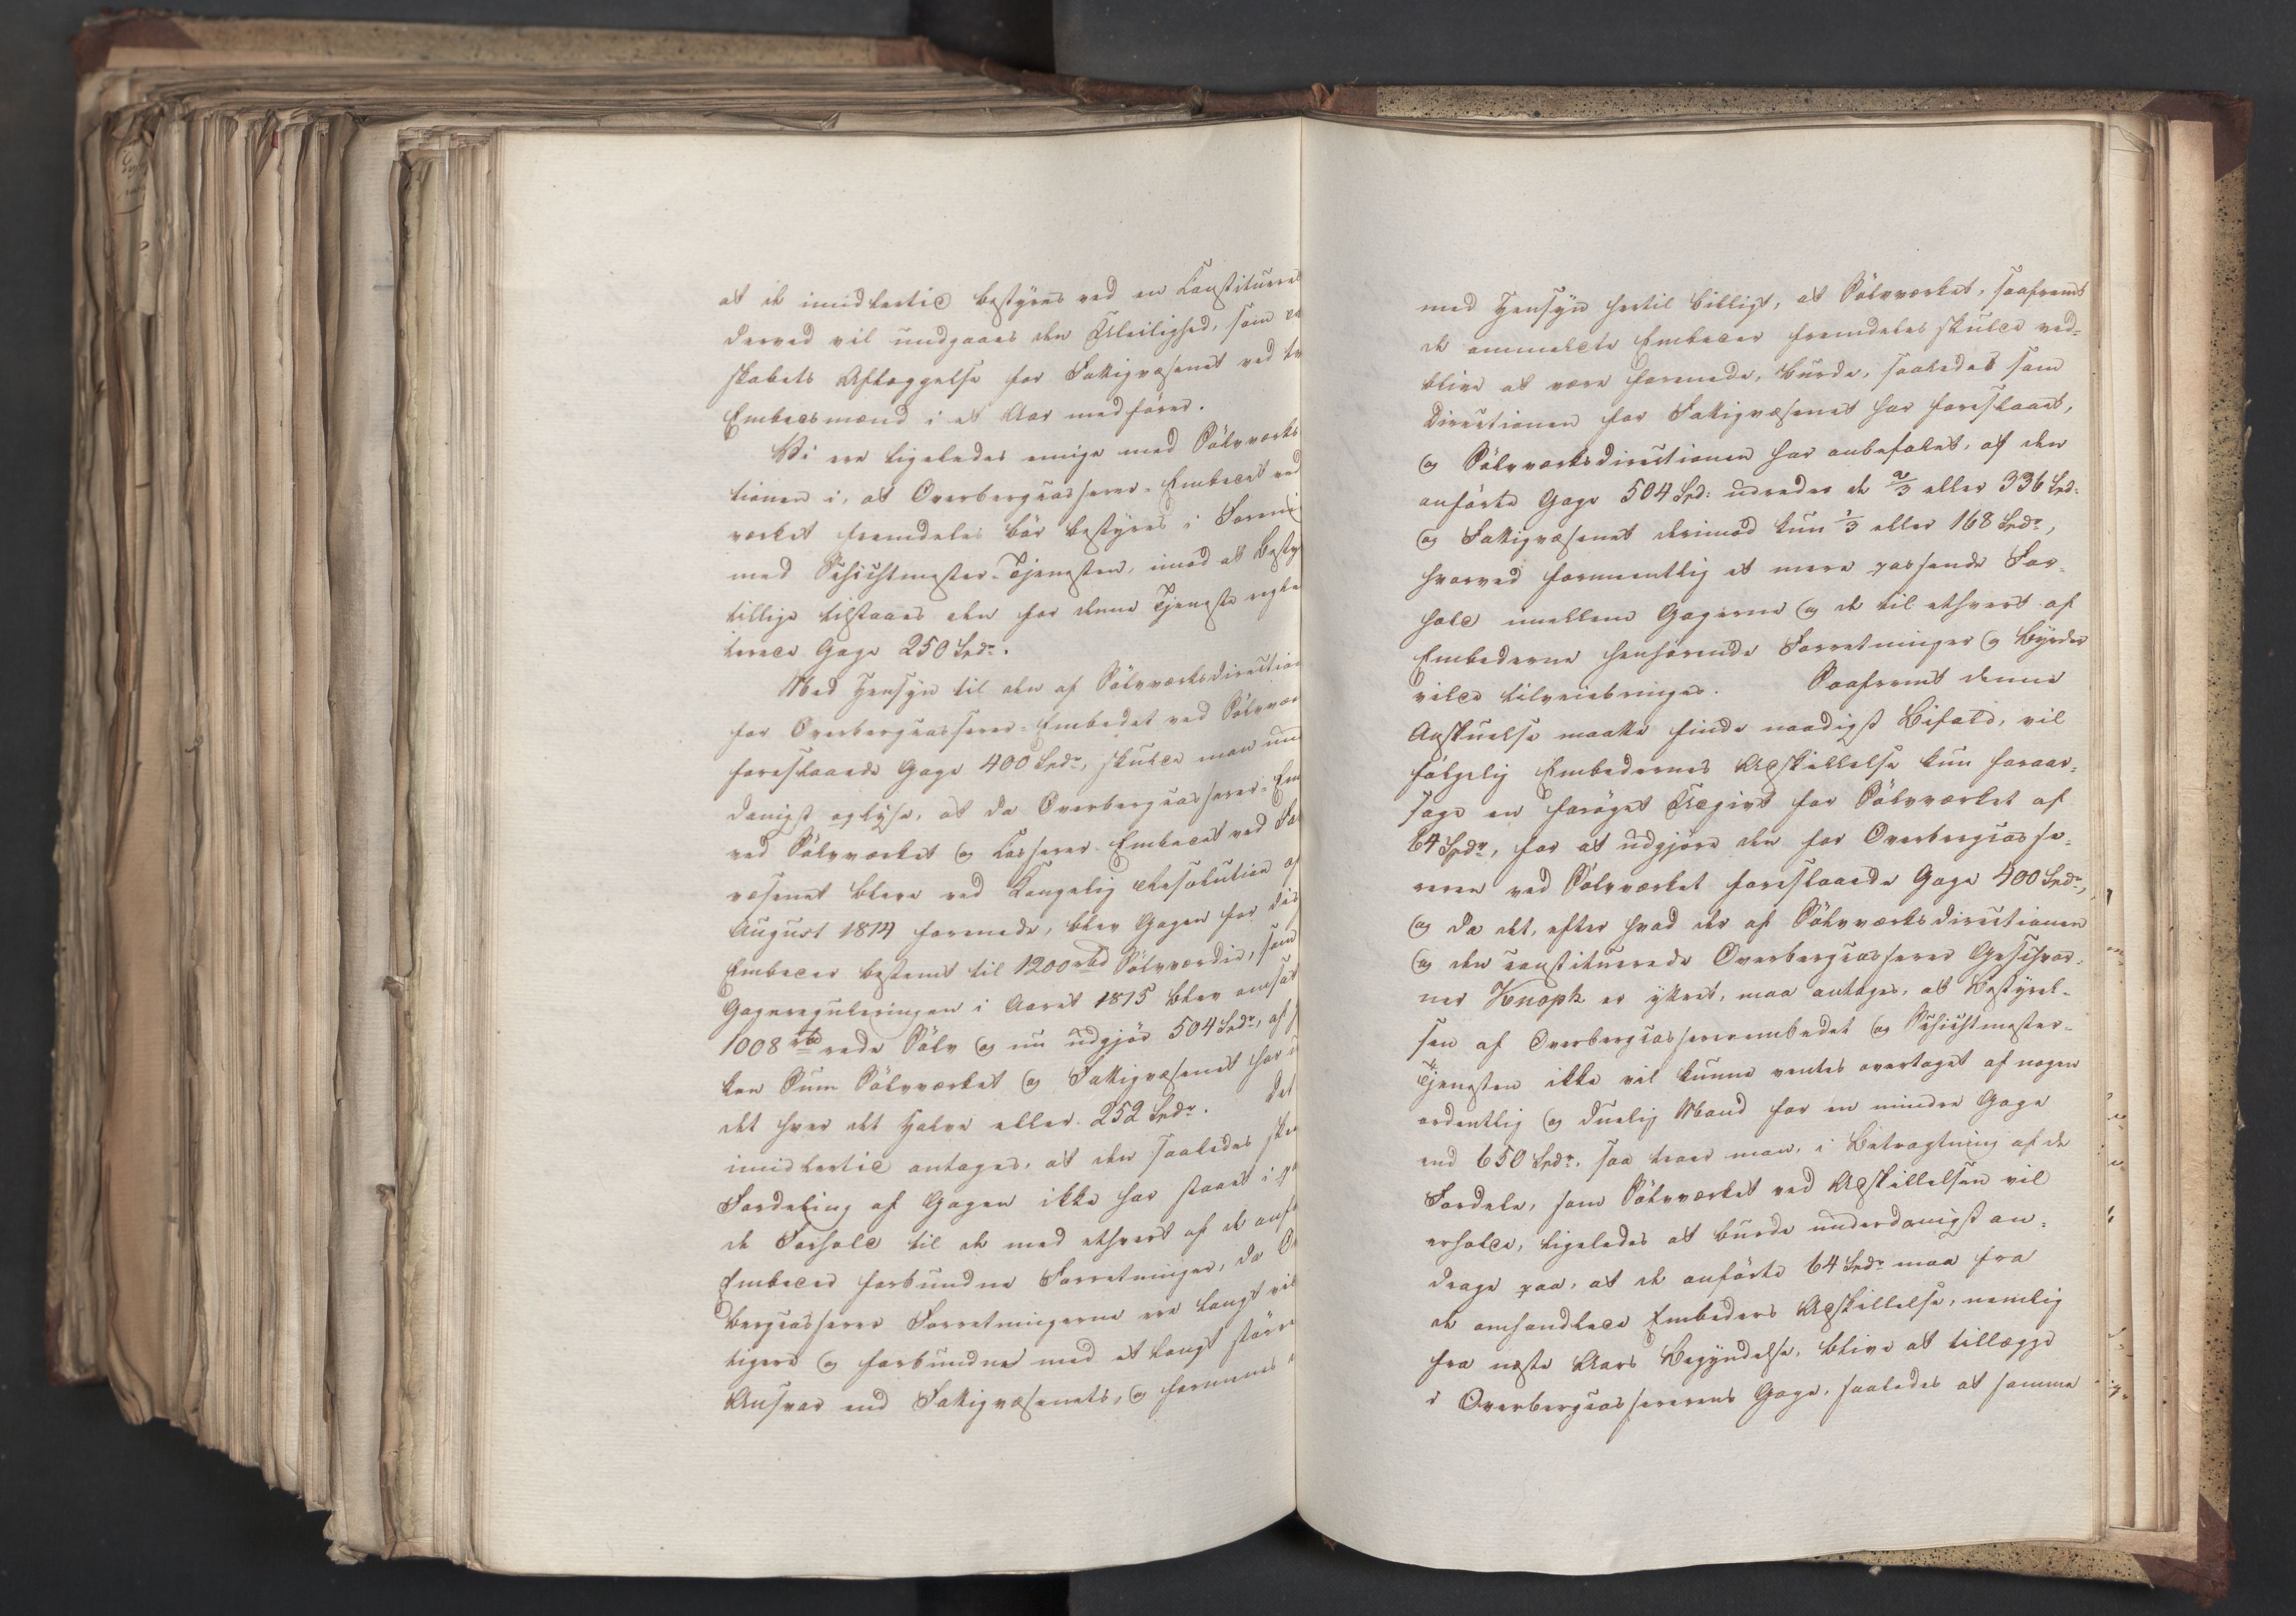 at de imidlertid bestyres ved en Constitueret
derved vil undgaaes den Uleilighed, som
skabets Aflæggelse for Fattigvæsenet ved
Embedsmænd i et Aar medfører.
Vi ere ligeledes enige med Sölvværks
tionen i, at Overbergcasserer-Embedet ved
værket fremdeles bör bestyres i Foreni
med Schichtmester-Tjenesten, imod at Besty
tillige tilstaaes den for denne Tjeneste regle
terede Gage 250 Spdr.
Med Hensyn til den af Sölvværksdirection
for Overbergcasserer-Embedet ved Sölvvær
foreslaaede Gage 400 Spdr, skulde man un
danigst oplyse, at da Overbergcasserer-Em
ved Sölvværket og Casserer-Embedet ved Fa
væsenet bleve ved Kongelig Resolution af
August 1814 forenede, blev Gagen for dis
Embeder bestemt til 1200 rbd Sölvværdie, som
Gagereguleringen i Aaret 1815 blev omsat
1008 rbd rede Sölv og nu udgjör 504 Spdr, af
ken Sum Sölvværket og Fattigvæsenet har u
det hver det Halve eller 252 Spdr. Det
imidlertid antages, at den saaledes ske
Fordeling af Gagen ikke har staaet i pa
de Forhold til de med ethvert af de anf
Embeder forbundne Forretninger, da O
bergcasserer Forretningerne ere langt vig
tigere og forbundne med et langt större
Ansvar end Fattigvæsenets, og formenes
med Hensyn hertil billigt, at Sölvværket, saafremt
de ommeldte Embeder fremdeles skulde ved-
blive at være forenede, burde, saaledes som
Directionen for Fattigvæsenet har foreslaaet,
og Sölvværksdirectionen har anbefalet, af den
anförte Gage 504 Spd: udredes de 2/3 eller 336 Spd:
og Fattigvæsenet derimod kun 1/3 eller 168 Spdr,
hvorved formeentlig et mere passende For-
hold imellem Gagerne og de til ethvert af
Embederne henhörende Forretninger og Byrder
vilde tilveiebringes. Saafremt denne
Anskuelse maatte finde naadigst Bifald, vil
fölgelig Embedernes Adskillelse kun foraar-
sage en foröget Udgivt for Sölvværket af
64 Spdr, for at udgjöre den for Overbergcasse-
reren ved Sölvværket foreslaaede Gage 400 Spdr,
og da det, efter hvad der af Sölvværksdirectionen
og den constituerede Overbergcasserer Geschwor-
ner Knoph er yttret, maa antages, at Bestyrel-
sen af Overbergcassererembedet og Schichtmester-
Tjenesten ikke vil kunne ventes overtaget af nogen
ordentlig og duelig Mand for en mindre Gage
end 650 Spdr, saa troer man, i Betragtning af de
Fordele, som Sölvværket ved Adskillelsen vil
erholde, ligeledes at burde underdanigst an-
drage paa, at de anförte 64 Spdr maa fra
de omhandlede Embeders Adskillelse, nemlig
fra næste Aars Begyndelse, blive at tillægge
Overbergcassererens Gage, saaledes at samme